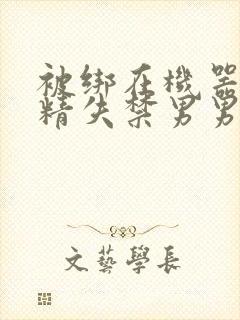 被绑在機器
精失禁男男
文藝學長